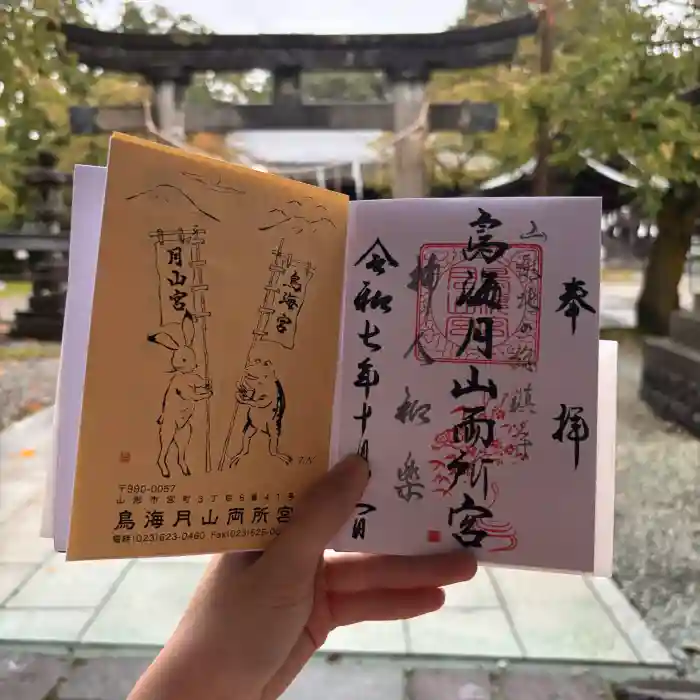 月山宮
鳥海宮
〒990-0057
山形市宮町3丁目8番41号
鳥海月山両所宮
電話(023)623-0460 Fax(023)626-00
奉拝
山形北の総鎮守
鳥海月山両所宮
神人和楽
令和七年十月八日
T.N